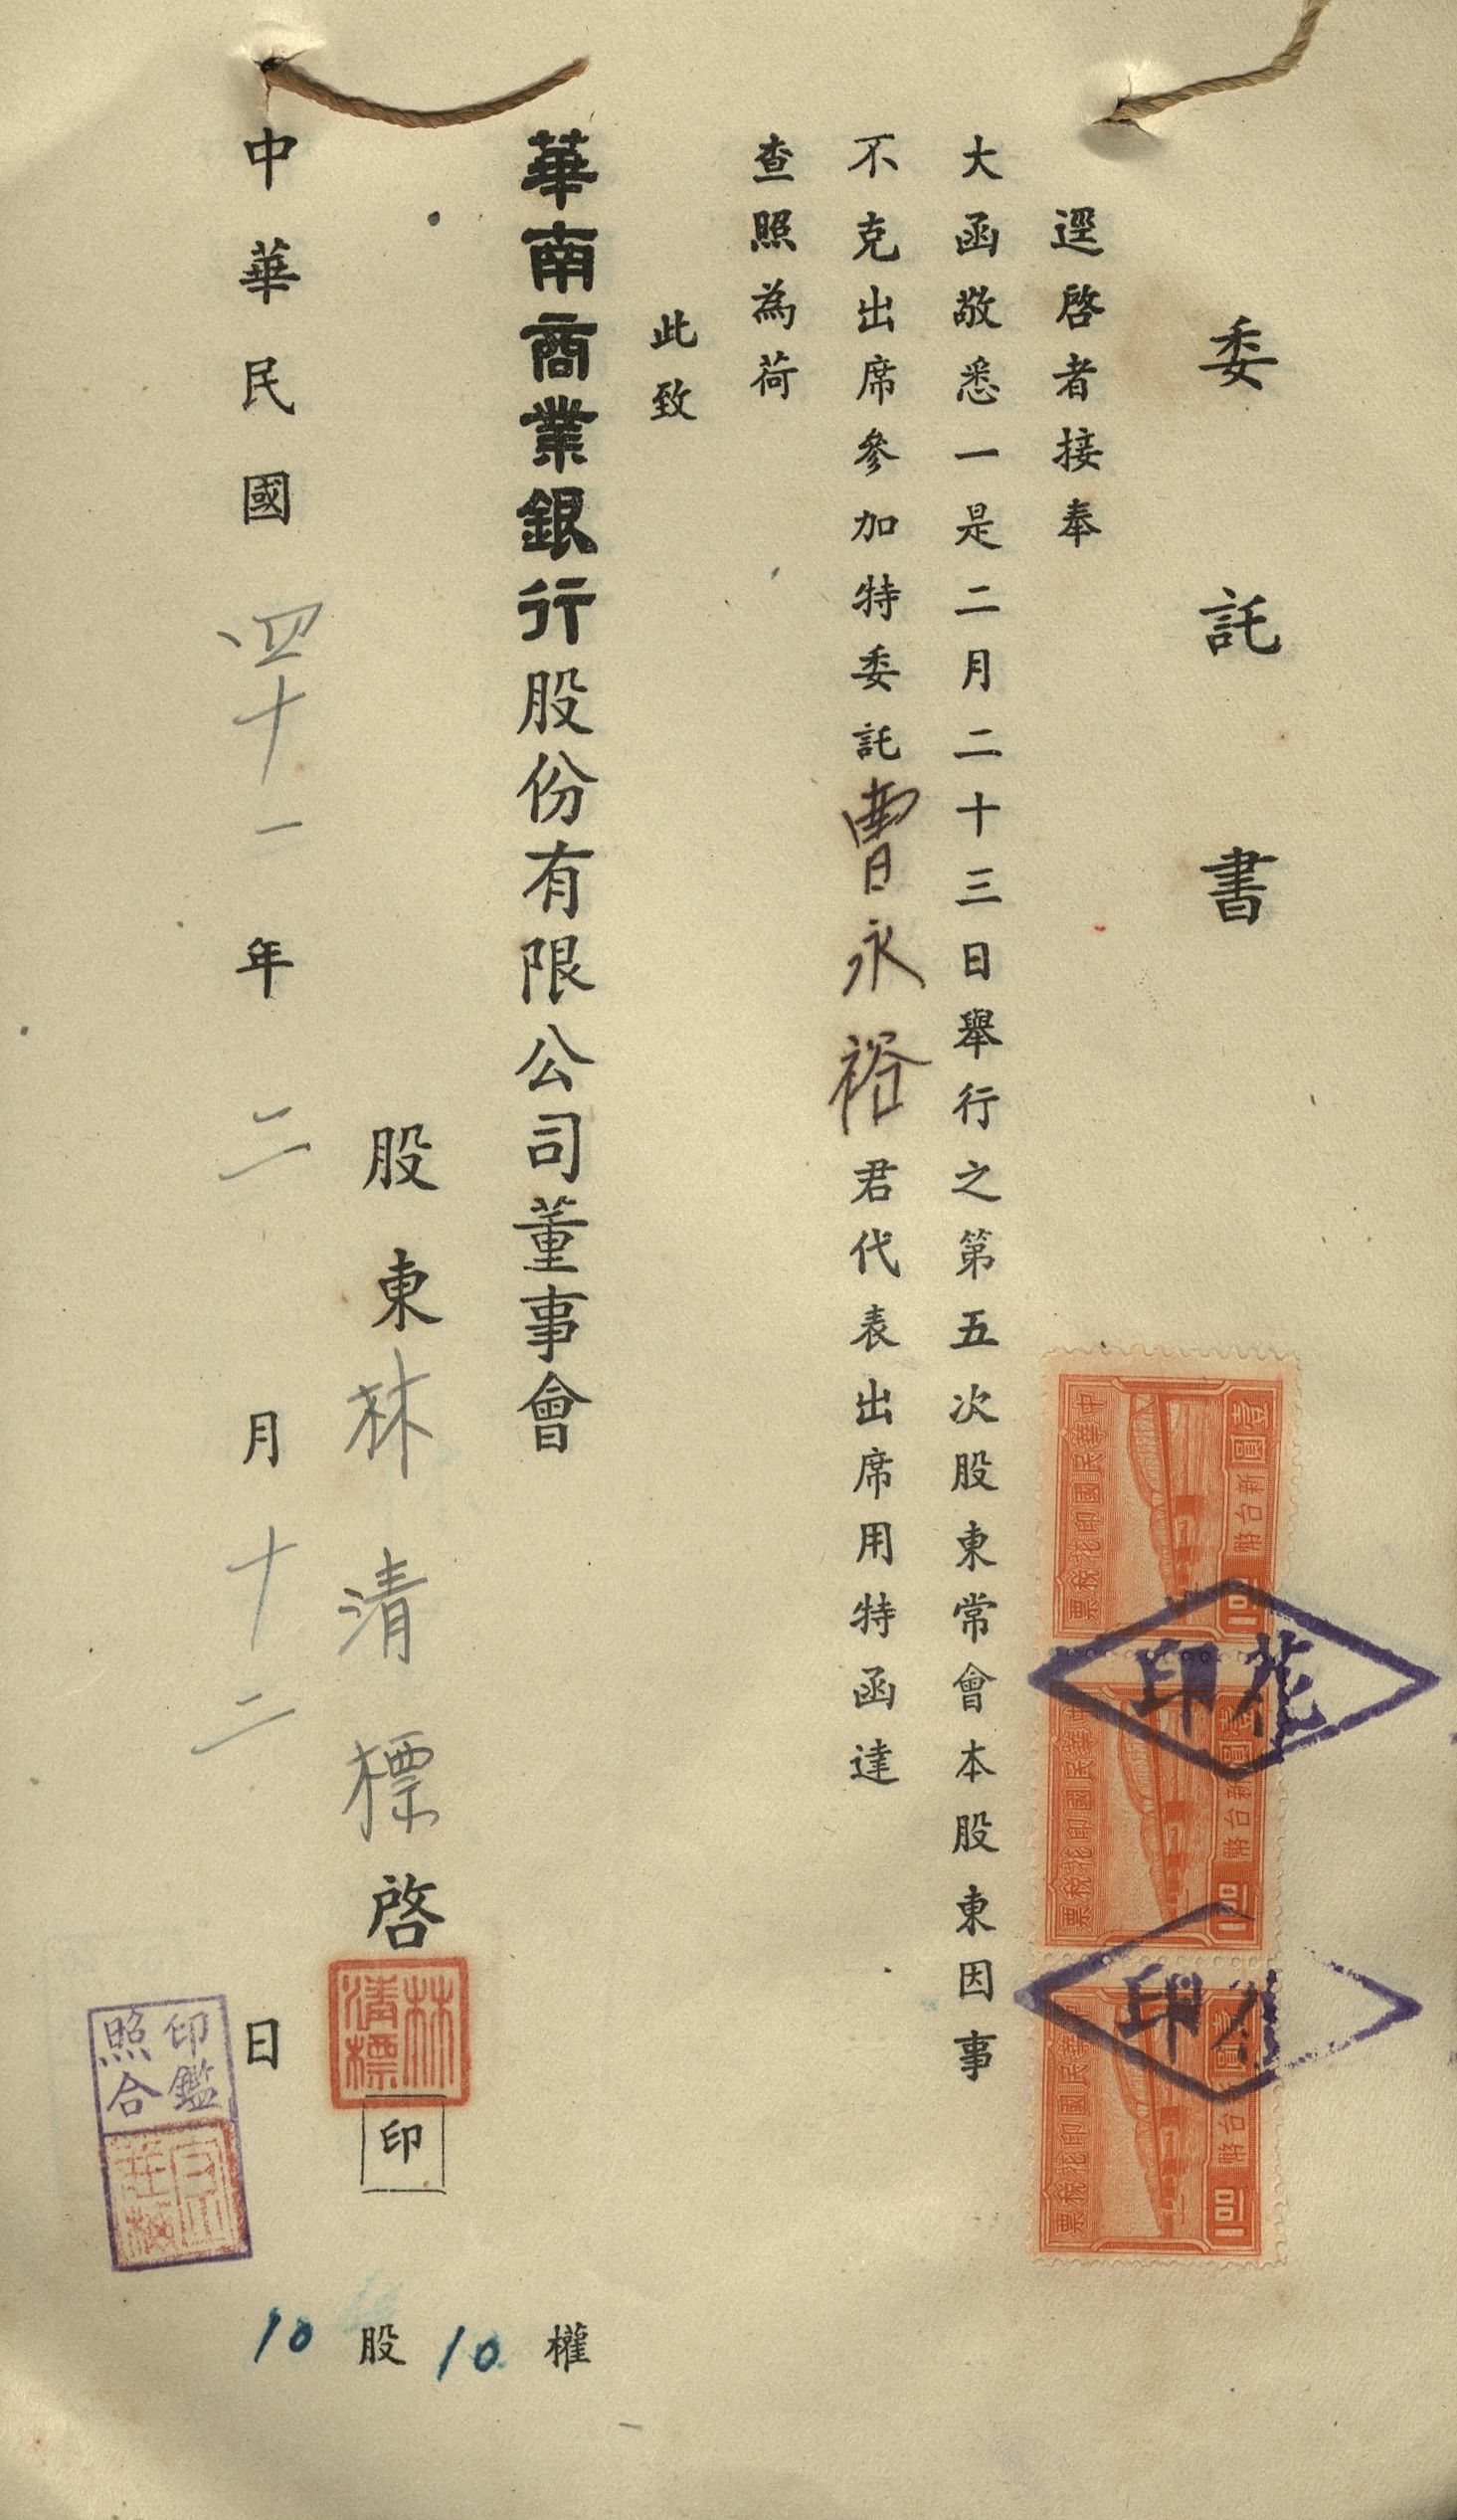 委託書
逕啓者接奉
大函敬悉一是二月二十三日舉行之第五次股東常會本股東因事
不克出席參加特委託曹永裕君代表出席用特函達
查照為荷
此致
華南商業銀行股份有限公司董事會
股東林清標啓
印
中華民國四十一年二月十二日
10股10權
林清標
印鑑
照合
中華民國印花稅票
壹圓
新台幣
1.00
中華民國印花稅票
壹圓
新台幣
1.00
中華民國印花稅票
壹圓
台幣
1.00
花印
印